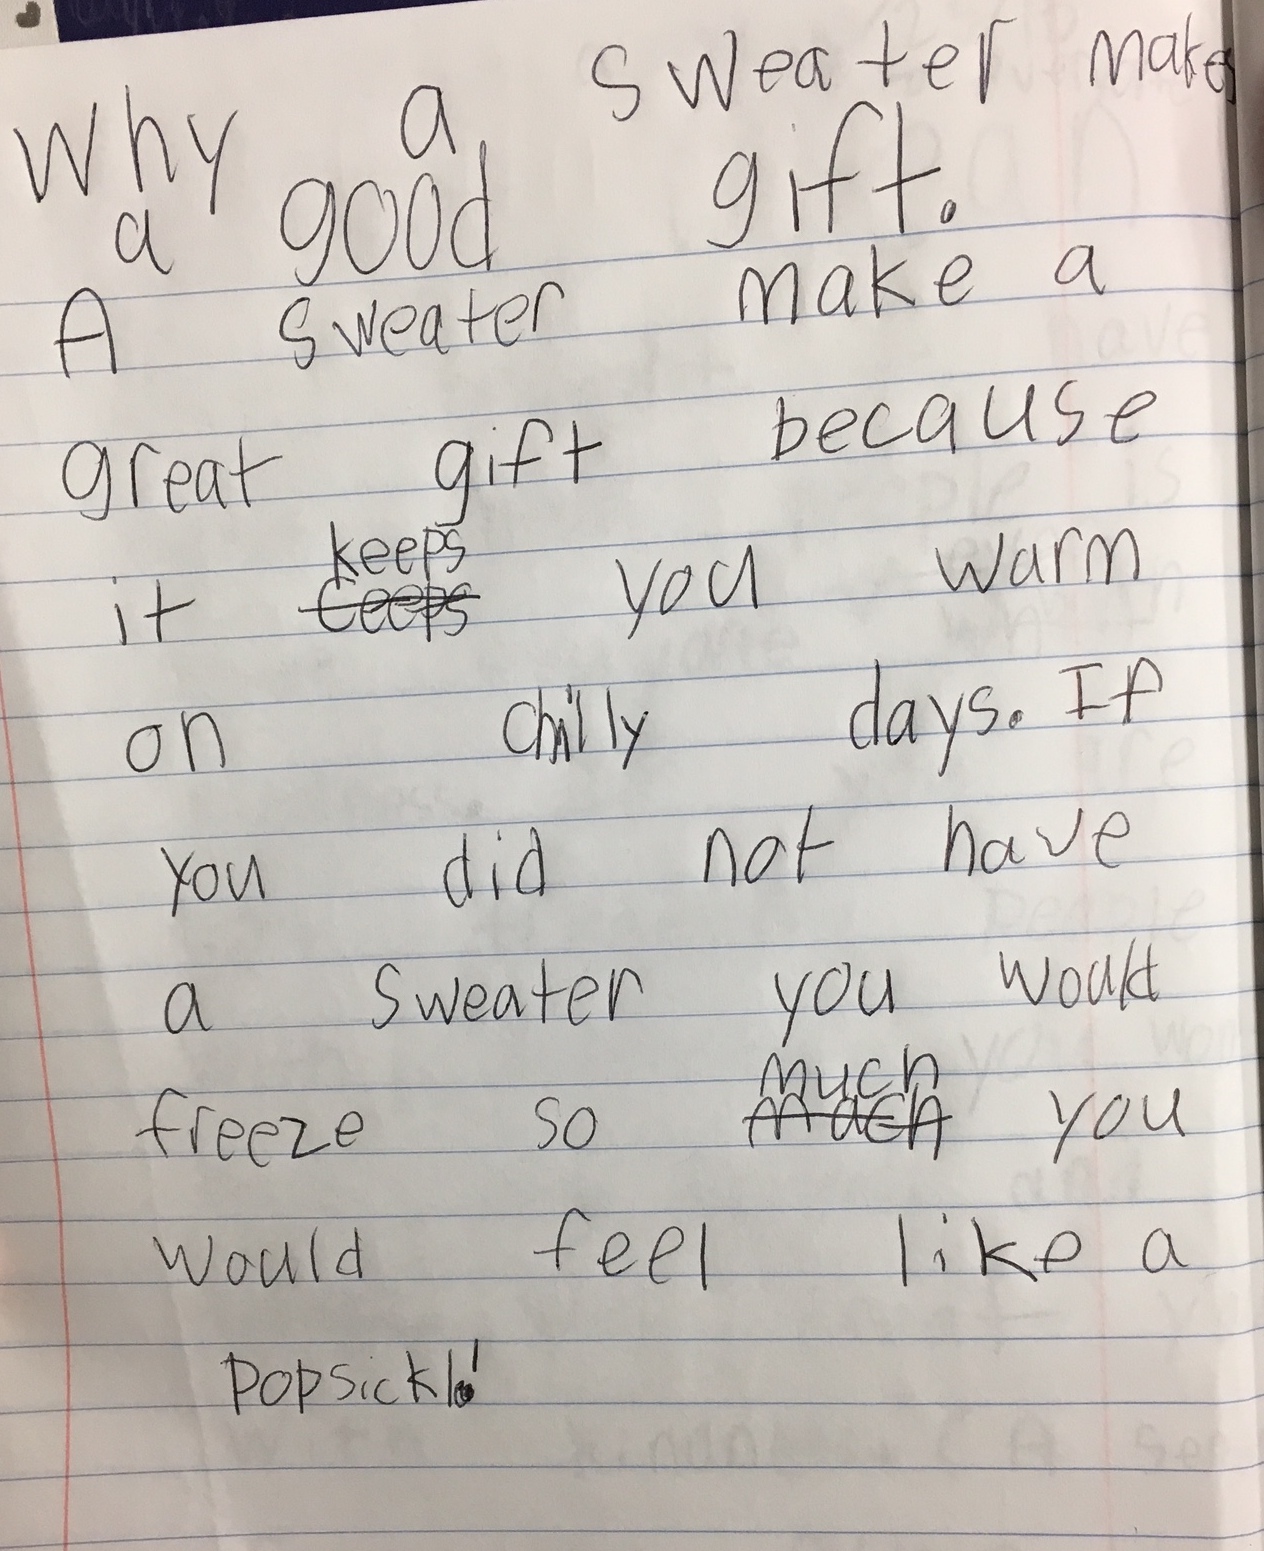 Why a sweater makes
a good gift.
A sweater make a
great gift because
keeps
it ceeps you warm
on chilly days. If
you did not have
a sweater you would
much
freeze so mach you
would feel like a
popsickle!